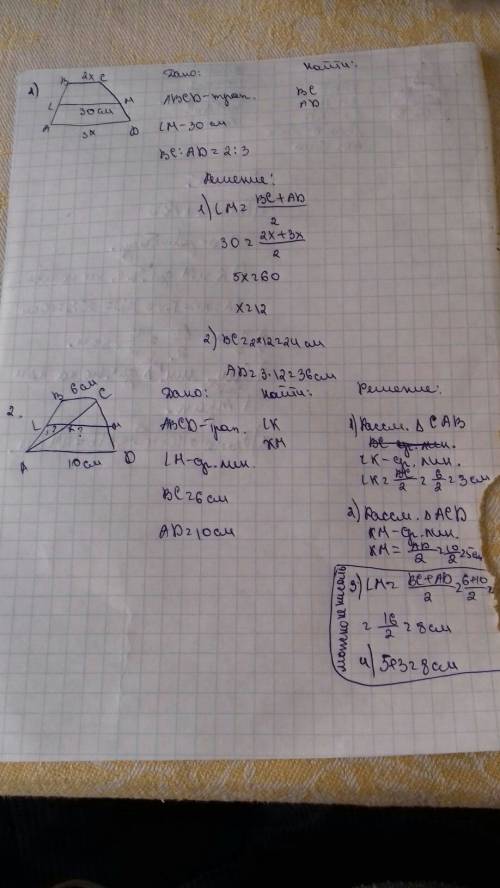 1)
B 2x C
L 30см M
A 3x D
Дано:
ABCD-трап.
LM-30 см
BC:AD=2:3
Найти:
BC
AD
Решение:
1) LM= BC+AD / 2
30= 2x+3x / 2
5x=60
x=12
2) BC=2×12=24 см
AD=3·12=36 см
2.
B 6см C
L K ? M
A 10см D
Дано:
ABCD-трап.
LM-ср. лин.
BC=6см
AD=10см
Найти:
LK
KM
Решение:
1) Рассм. △ CAB
LK-ср. лин.
LK= BC/2 = 6/2 = 3 см
2) Рассм. △ ACD
KM-ср. лин.
KM= AD/2 = 10/2 = 5см
можно не писать
3) LM= BC+AD / 2 = 6+10 / 2 =
= 16/2 = 8 см
4) 5+3=8 см